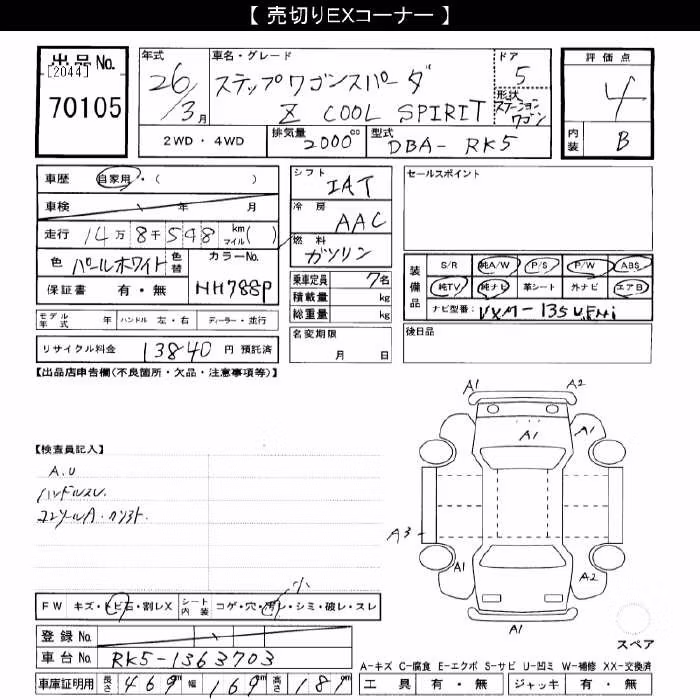 【 売切りEXコーナー 】
出品No.
[2044]
70105
年式
26/3月
車名・グレード
ステップワゴンスパーダ
Z COOL SPIRIT
ドア
5
形状
ステーションワゴン
評価点
4
内装
B
2WD・4WD
排気量
2000cc
型式
DBA-RK5
車歴
自家用・( )
車検
年 月
走行
14万8千548 km マイル( )
色
パールホワイト
色替
カラーNo.
NH788P
保証書 有・無
モデル年式 年
ハンドル 左・右
ディーラー・並行
リサイクル料金 13840 円 預託済
シフト
IAT
冷房
AAC
燃料
ガソリン
乗車定員 7名
積載量 kg
総重量 kg
名変期限
月 日
セールスポイント
装備品
S/R 純A/W P/S P/W ABS
純TV 純ナビ 革シート 外ナビ エアB
ナビ型番:
後日品
【出品店申告欄(不良箇所・欠品・注意事項等)】
【検査員記入】
A.U
ハンドルスレ
A1 A2
A1
A1
A3
A1
A2
A1
スペア
FW キズ・トビ石・割レX
シート内装 コゲ・穴・汚レ・シミ・破レ・スレ
登録No.
車台No. RK5-1363703
車庫証明用 長さ 469m 幅 169m 高さ 187m
A-キズ C-腐食 E-エクボ S-サビ U-凹ミ W-補修 XX-交換済
工具 有・無 ジャッキ 有・無